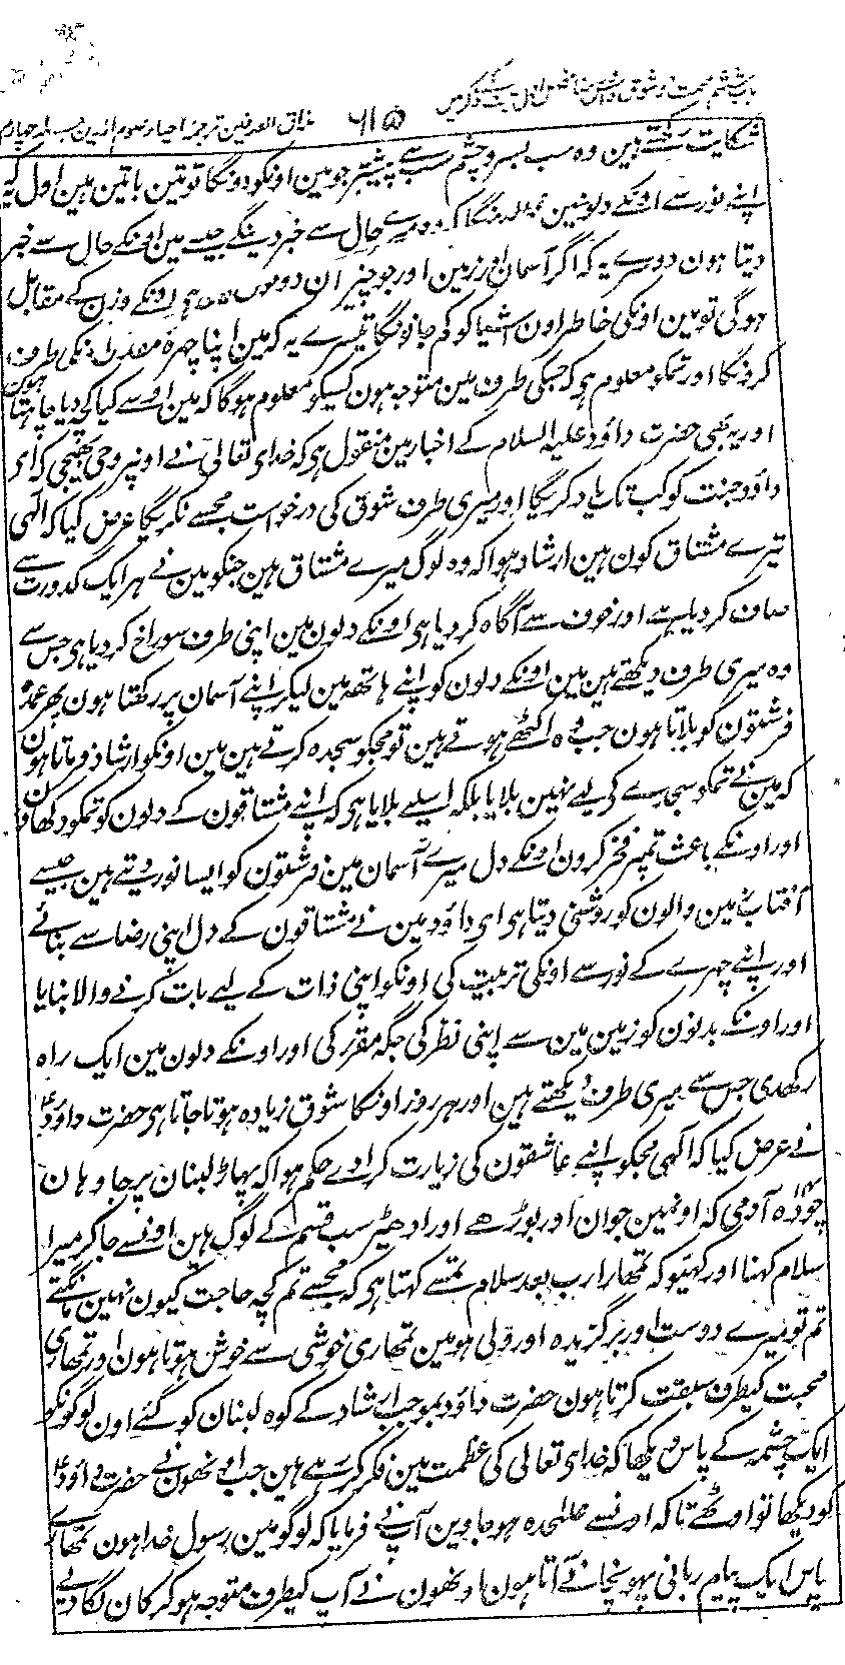 باب ششم محبت اور شوق
۶۱۵
مذاق العارفین ترجمہ احیاء علوم الدین جلد چہارم
شکایت سہتے ہین وہ سب بسر و چشم سب سے پیشتر جو مین اونکو دونگا تو تین باتین ہین اول یہ کہ
اپنے نور سے اونکے دلونمین ڈالدونگا کہ وہ میرے حال سے خبر دینگے جیسے مین اونکے حال سے خبر
دیتا ہون دوسرے یہ کہ اگر آسمان اور زمین اور جو چیز ان دونون مین ہے اونکے وزن کے مقابل
ہوگی تو مین اونکی خاطر اون اشیا کو کم جانونگا تیسرے یہ کہ مین اپنا چہرہ مقدس اونکی طرف
کرونگا اور تمکو معلوم ہو کہ جسکی طرف مین متوجہ ہون کسیکو معلوم ہوگا کہ مین اوسے کیا کچھ دیا چاہتا ہون
اور یہ بھی حضرت داؤد علیہ السلام کے اخبار مین منقول ہی کہ خدای تعالی نے اونپر وحی بھیجی کہ ای
داؤد جنت کو کب تک یاد کریگا اور میری طرف شوق کی درخواست مجھسے نکریگا عرض کیا کہ الہی
تیرے مشتاق کون ہین ارشاد ہوا کہ وہ لوگ میرے مشتاق ہین جنکو مین نے ہر ایک کدورت سے
صاف کر دیا ہے اور خوف سے آگاہ کر دیا ہی اونکے دلون مین اپنی طرف سوراخ کر دیا ہی جس سے
وہ میری طرف دیکھتے ہین مین اونکے دلون کو اپنے ہاتھ مین لیکر اپنے آسمان پر رکھتا ہون پھر عمدہ
فرشتون کو بلاتا ہون جب وہ اکٹھے ہوتے ہین تو مجکو سجدہ کرتے ہین مین اونکو ارشاد فرماتا ہون
کہ مین نے تمکو سجدے کے لیے نہین بلایا بلکہ اسلیے بلایا ہی کہ اپنے مشتاقون کے دلون کو تمکو دکھاؤن
اور اونکے باعث تمپر فخر کرون اونکے دل میرے آسمان مین فرشتون کو ایسا نور دیتے ہین جیسے
آفتاب زمین والون کو روشنی دیتا ہی ای داؤد مین نے مشتاقون کے دل اپنی رضا سے بنائے
اور اپنے چہرے کے نور سے اونکی تربیت کی اونکو اپنی ذات کے لیے بات کرنے والا بنایا
اور اونکے بدنون کو زمین مین سے اپنی نظر کی جگہ مقرر کی اور اونکے دلون مین ایک راہ
رکھدی جس سے میری طرف دیکھتے ہین اور ہر روز اونکا شوق زیادہ ہوتا جاتا ہی حضرت داؤدؑ
نے عرض کیا کہ الہی مجکو اپنے عاشقون کی زیارت کرا دے حکم ہوا کہ پہاڑ لبنان پر جا وہان
چودہ ۱۴ آدمی کہ اونمین جوان اور بوڑھے اور ادھیڑ سب قسم کے لوگ ہین اونسے جا کر میرا
سلام کہنا اور کہیو کہ تمھارا رب بعد سلام تمسے کہتا ہی کہ مجھسے تم کچھ حاجت کیون نہین مانگتے
تم تو میرے دوست اور برگزیدہ اور ولی ہو مین تمھاری خوشی سے خوش ہوتا ہون اور تمھاری
محبت کیطرف سبقت کرتا ہون حضرت داؤد بموجب ارشاد کے کوہ لبنان کو گئے اون لوگونکو
ایک چشمہ کے پاس دیکھا کہ خدای تعالی کی عظمت مین فکر کر رہے ہین جب اونھون نے حضرت داؤدؑ
کو دیکھا تو اوٹھے تاکہ اونسے علٰحدہ ہو جاوین آپ نے فرمایا کہ لوگو مین رسول خدا ہون تمھارے
پاس ایک پیام ربانی پہونچانے آتا ہون اونھون نے آپ کیطرف متوجہ ہو کر کان لگا دیے